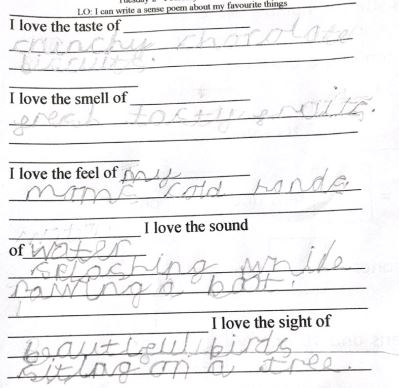 LO: I can write a sense poem about my favourite things
I love the taste of
crunchy chocolate
biscuits.
I love the smell of
great tasty fruits.
I love the feel of my
mom's cold hands
I love the sound
of water
splashing while
rowing a boat.
I love the sight of
beautiful birds
sitting on a tree.